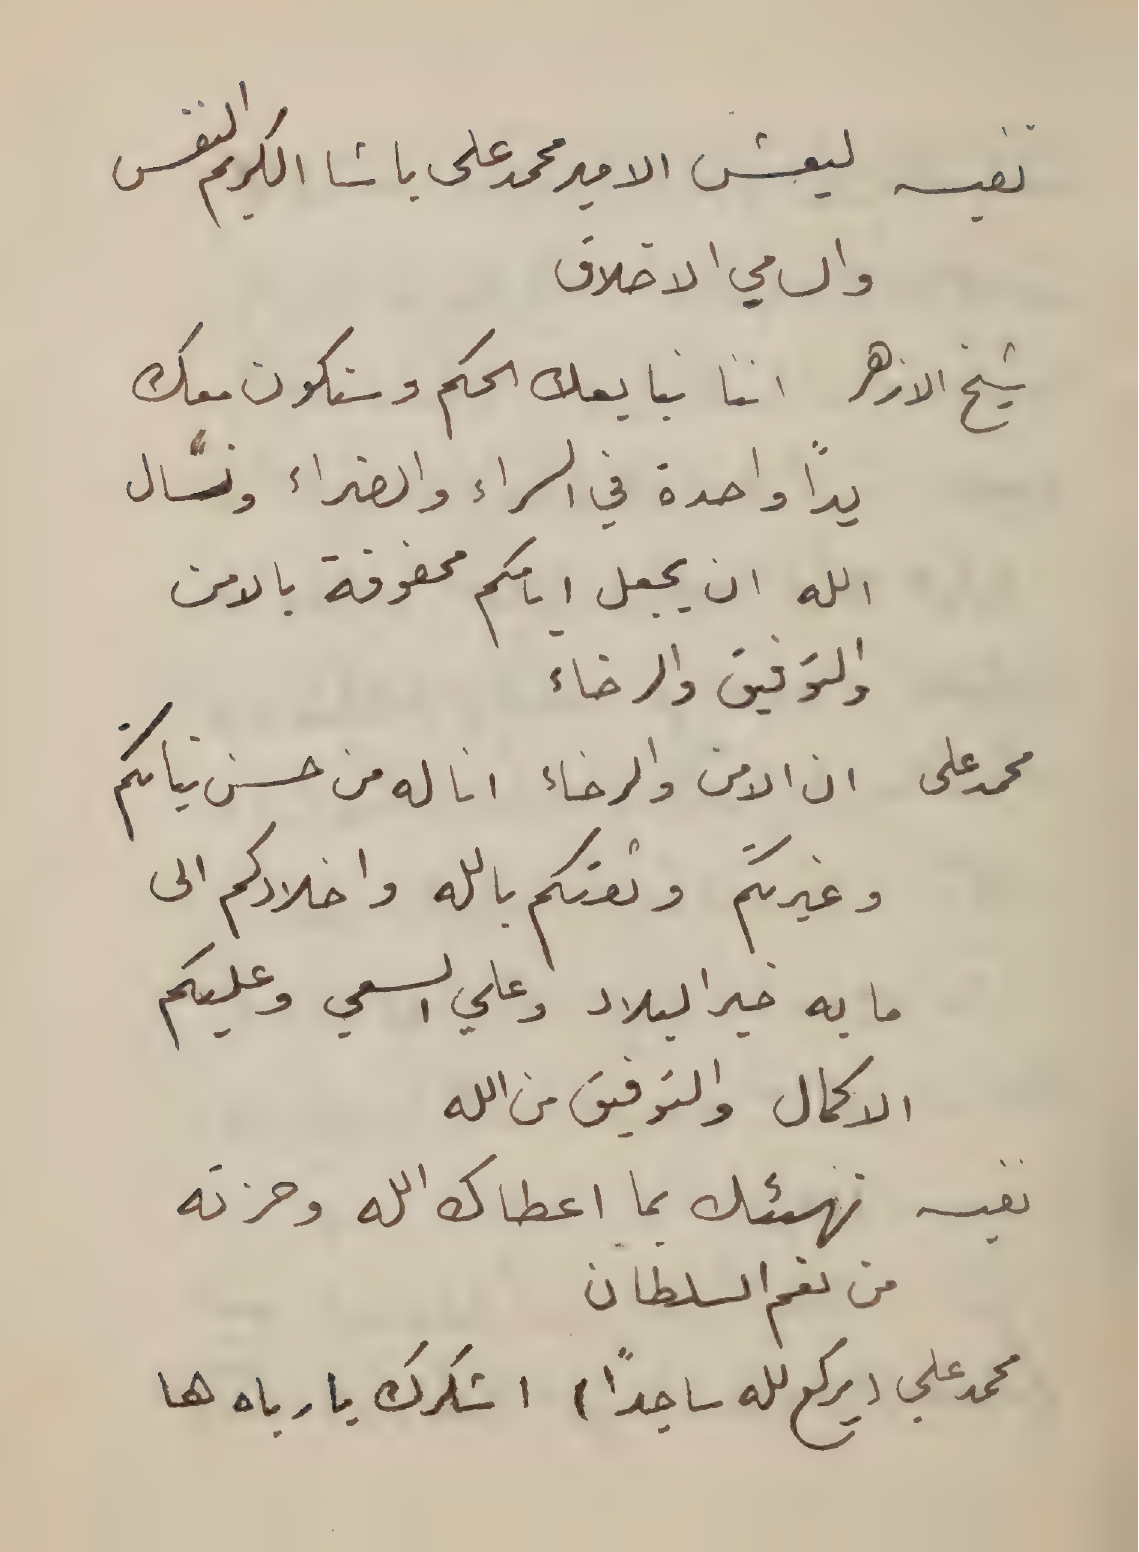 نفيسه ليعش الامير محمد على باشا الكريم النفس
والسامي الاخلاق
شيخ الازهر اننا نبايعك الحكم وسنكون معك
يدًا واحدة في السراء والضراء ونسّال
الله ان يجعل ايامكم محفوفة بالامن
والتوفيق والرخاء
محمد على ان الامن والرخاء اناله من حسن نياتكم
وغيرتكم وثقتكم بالله واخلادكم الى
ما به خير البلاد وعلي السعي وعليكم
الاكمال والتوفيق من الله
نفيسه نهنئك بما اعطاك الله وحزته
من نعم السلطان
محمد علي (يركع لله ساجدًا) اشكرك يا رباه ها